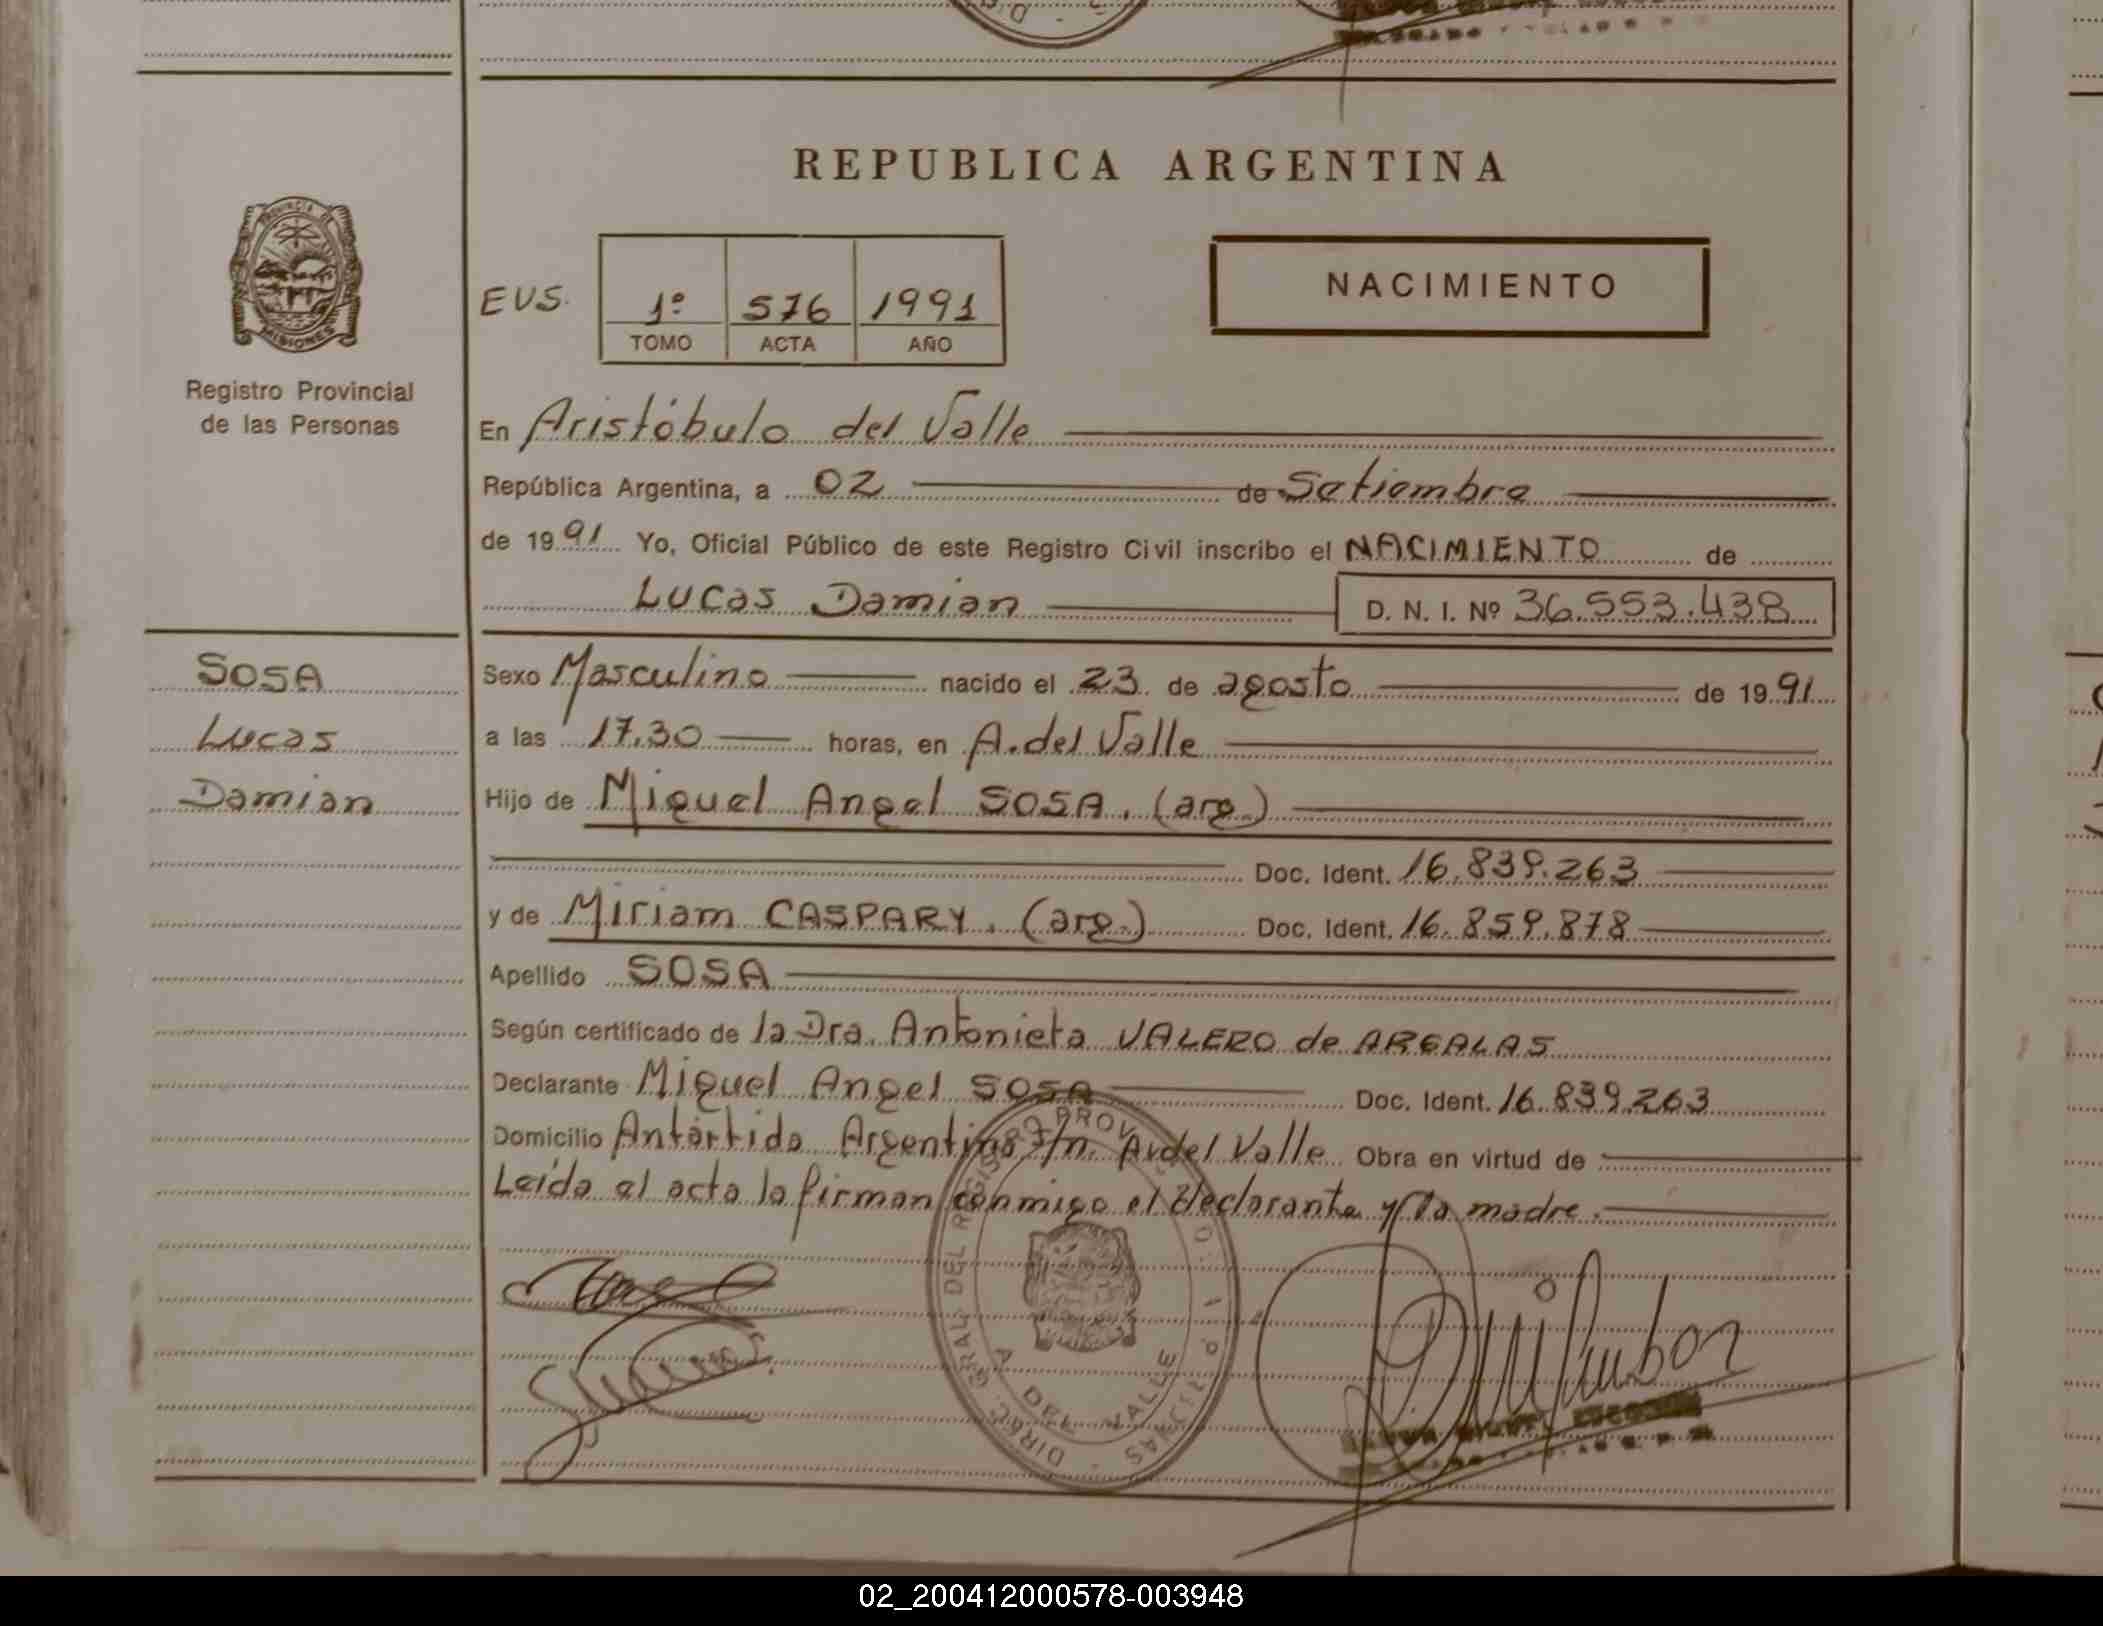 REPUBLICA ARGENTINA
PROVINCIA DE
MISIONES
Registro Provincial
de las Personas
EVS.
1º 576 1991
TOMO ACTA AÑO
NACIMIENTO
En Aristóbulo del Valle
República Argentina, a 02 de Setiembre
de 1991 Yo, Oficial Público de este Registro Civil inscribo el NACIMIENTO de
Lucas Damian D. N. I. Nº 36.553.438
SOSA
Lucas
Damian
Sexo Masculino nacido el 23 de agosto de 1991
a las 17.30 horas, en A. del Valle
Hijo de Miguel Angel SOSA. (arg.)
Doc. Ident. 16.839.263
y de Miriam CASPARY. (arg.) Doc. Ident. 16.859.878
Apellido SOSA
Según certificado de la Dra. Antonieta VALERO de ARGALAS
Declarante Miguel Angel SOSA Doc. Ident. 16.839.263
Domicilio Antártida Argentina s/n. A. del Valle Obra en virtud de
Leída el acta la firman conmigo el declarante y la madre.
DIREC. GRAL. DEL REGISTRO PROV.
A. DEL VALLE
02_200412000578-003948